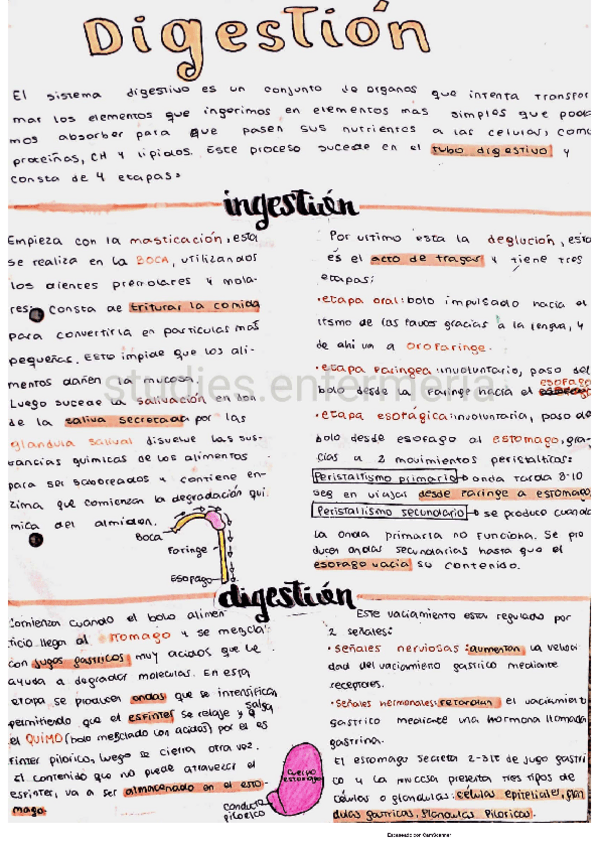 Digestión
El sistema digestivo es un conjunto de organos que intenta transfor
mar los elementos que ingerimos en elementos mas simples que poda
mos absorber para que pasen sus nutrientes a las celulas, como
proteinas, CH y lipidos. Este proceso sucede en el tubo digestivo y
consta de 4 etapas:
ingestión
Empieza con la masticación, esta
se realiza en la BOCA, utilizando
los dientes premolares y mola-
res. Consta de triturar la comida
para convertirla en particulas mas
pequeñas. Esto impide que los ali-
mentos dañen la mucosa.
Luego sucede la salivación en don
de la saliva secretada por las
glandula salival disuelve las sus-
tancias quimicas de los alimentos
para ser saboreados y contiene en-
zima que comienza la degradación qui
mica del almidon.
Boca
Faringe
Esofago
Por ultimo esta la deglución, esto
es el acto de tragar y tiene tres
etapas:
•etapa oral: bolo impulsado hacia el
itsmo de las fauces gracias a la lengua, y
de ahi va a orofaringe.
•etapa faringea: involuntario, paso del
bolo desde la faringe hacia el esofago
•etapa esofágica: involuntaria, paso de
bolo desde esofago al estomago, gra-
cias a 2 movimientos peristalticos:
Peristaltismo primario onda tarda 8-10
seg en viajar desde faringe a estomago
Peristaltismo secundario se produce cuando
la onda primaria no funciona. Se pro
ducen ondas secundarias hasta que el
esofago vacia su contenido.
studies.enfermeria
digestión
Comienza cuando el bolo alimen
ticio llega al stomago y se mezcla
con jugos gastricos muy acidos que le
ayuda a degradar moleculas. En esta
etapa se producen ondas que se intensifica,
permitiendo que el esfinter se relaje y salga
el QUIMO (bolo mezclado con acidos) por el es
finter pilorico, luego se cierra otra vez.
El contenido que no puede atravezar el
esfinter, va a ser almacenado en el esto-
mago.
cuerpo
estomago
conducto
pilorico
Este vaciamiento esta regulado por
2 señales:
•señales nerviosas: aumentan la veloci
dad del vaciamiento gastrico mediante
receptores.
•Señales hormonales: retardan el vaciamiento
gastrico mediante una hormona llamada
gastrina.
El estomago secreta 2-3lt de jugo gastri
co y la mucosa presenta tres tipos de
células o glandulas: células epiteliales, glan
dulas gastricas, glandulas piloricas.
Escaneado con CamScanner